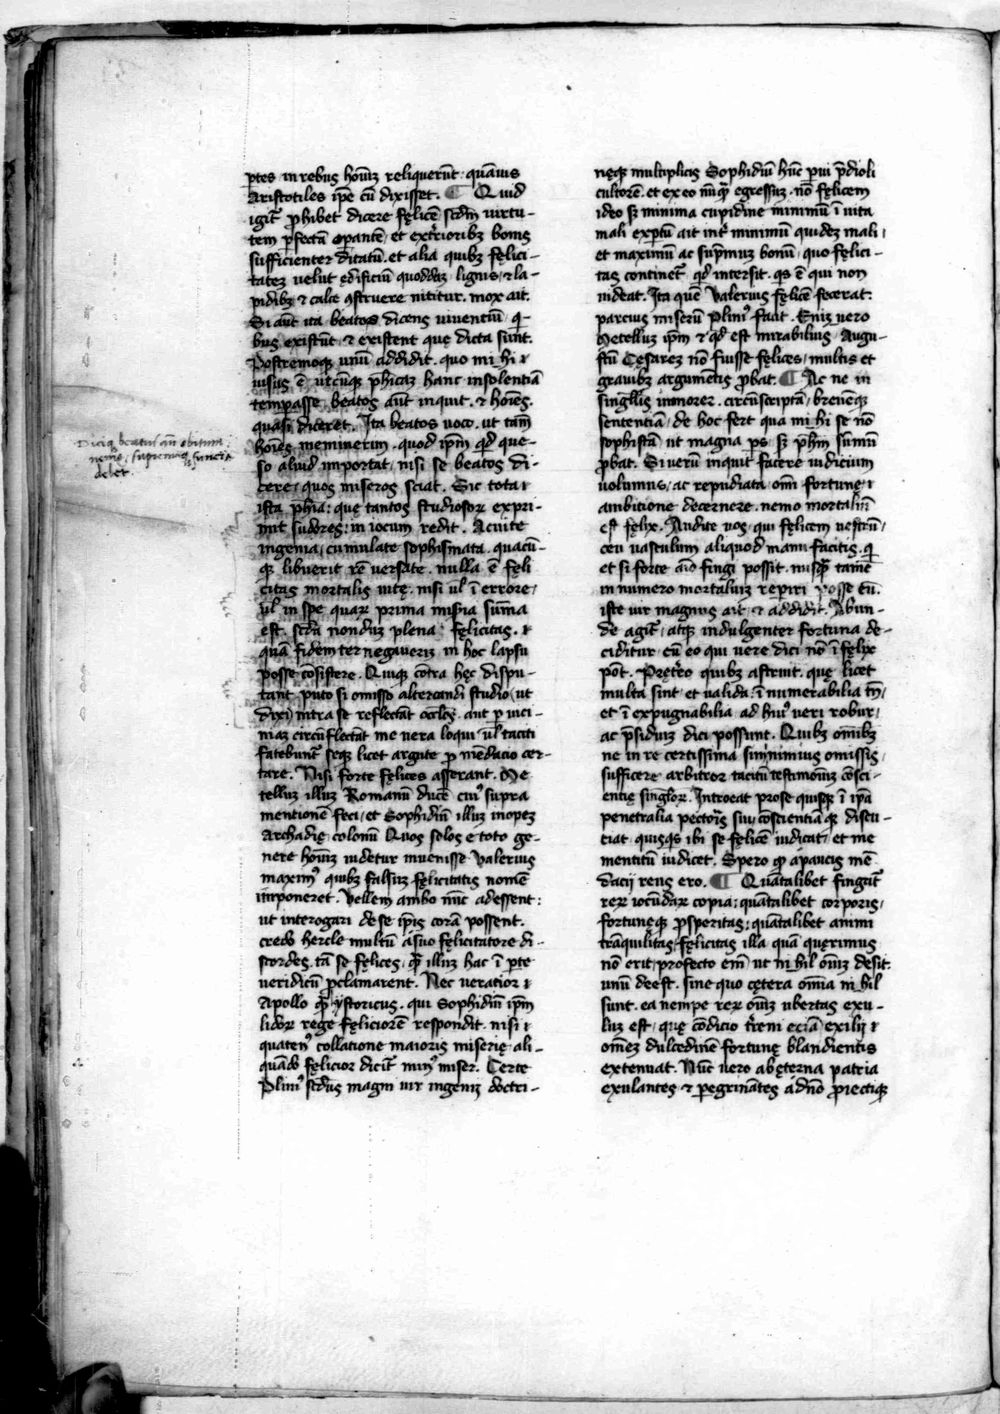 ptes in rebus hoīuʒ reliquerūt: quāuis
Aristotiles ip̄e cū dixisset. ¶ Quid
igit̄ ꝓhibet dicere fęlicē scd̄m uirtu-
tem ꝑfectā oꝑantē, et ext̄rioribꝫ bonis
sufficienter ditatū. et alia quibꝫ fęlici-
tatez uelut ędificiū quoddaʒ lignis, ⁊ la-
pidibꝫ ⁊ calce ꝯstruere nititur. mox ait.
Si aūt ita beatos dicens uiuentiū, q̄-
bus existūt, ⁊ existent quę dicta sunt.
Postremoqꝫ unū addidit. quo mi hi ⁊
uisus ē utcūqꝫ ph̄icaʒ hanc insolentiā
temperasse. beatos aūt inquit. ⁊ hoīes.
quasi diceret. Ita beatos uoco. ut tam̄
hoīes meminerim. quod ip̄m qd̄ que-
so aliud importat, nisi se beatos di-
cere, quos miseros sciat. Sic tota ⁊
ista ph̄ia: quę tantos studiosoꝝ expri-
mit sudores: in iocum redit. Acuite
ingenia, cumulate sophismata. quacū-
qꝫ libuerit rē uersate. nulla ē fęli
citas mortalis uitę. nisi ul̄ ī errore,
ul̄ in spe quaꝝ prima mis̄ia sūma
est. scd̄a nonduʒ plena fęlicitas. ⁊
quā fidem ter negaueris in hoc lapsu
posse cōsistere. Quiqꝫ cōtra hęc dispu-
tant puto si omisso altercandi studio (ut
dixi) intra se reflectāt oc̄los. aut ꝑ uici-
niaʒ circūflectāt me uera loqui ul̄ taciti
fatebunt̄ seqꝫ licet argute ꝓ mēdacio cer-
tare. Nisi forte fęlices asserant. Me
telluʒ illuʒ Romanū ducē cuiꝰ supra
mentionē feci, et Sophidiū illuʒ inopeʒ
Archadię colonū Quos solos e toto ge-
nere hoīuʒ uidetur inuenisse Valerius
maximꝰ quibꝫ falsuʒ fęlicitatis nomē
imponeret. Vellem ambo nūc adessent:
ut interogari de se ip̄is corā possent.
credo hercle multū a suo fęlicitatore di-
scordes. tā se fęlices, q̄ illuʒ hac ī ꝑte
ueridicū ꝓclamarent. Nec ueratior ⁊
Apollo q̄ ystoricus. qui Sophidiū ip̄m
lidoꝝ rege fęliciorē respondit. nisi ⁊
quatenꝰ collatione maioris miserię ali-
quādo fęlicior dicit̄ minꝰ miser. Certe
Plinꝰ scd̄us magni uir ingenij doctri-
nęqꝫ multiplicis Sophidiū hūc ꝑui p̄dioli
cultorē. et ex eo nūq̄ egressuʒ. nō fęlicem
ideo sꝫ minima cupidine minimū ī uita
mali exꝑtū ait int̄ minimū quideʒ mali,
et maximū ac sup̄mus bonū, quo fęlici-
tas continet̄ qd̄ intersit. qs ē qui non
uideat. Ita quē Valerius fęlicē fecerat.
parcius miserū Plinꝰ facit. Eniʒ uero
Metelluʒ ip̄m ⁊ qd̄ est mirabilius, Augu-
stū Cęsareʒ nō fuisse fęlices, multis et
grauibꝫ argumētis ꝓbat. ¶ Ac ne in
singl̄is inmorer. circūscriptā, breueqꝫ
sententiā, de hoc fert qua mi hi se nō
sophistā, ut magna ps sꝫ ph̄m sūmū
ꝓbat. Si uerū inquit facere iudicium
uolumus, ac repudiata omī fortunę ⁊
ambitione decernere. nemo mortaliū
est fęlix. Audite uos, qui fęlicem uestrū,
ceu uasculum aliquod manu facitis. q̄
et si forte aīo fingi possit. nusq̄ tamē
in numero mortaliuʒ reperiri posse cū.
iste uir magnus ait, ⁊ addidit. Abun-
de agit̄, atqꝫ indulgenter fortuna de-
ciditur cū eo qui uere dici nō īfęlix
pōt. Pręt̄eo quibꝫ astruit. quę licet
multa sint, et ualida: īnumerabilia tn̄,
et īexpugnabilia, ad huiꝰ ueri robur,
ac p̄siduiʒ dici possunt. Quibꝫ oīmbꝫ
ne in re certissima simnimius omissis,
sufficere arbitror tacitū testimoniʒ cōsci-
entię singloꝝ. Introeat prose quisqꝫ ī ip̄a
penetralia pectoris siui, coscientiāqꝫ discu-
ciat. quisqs ibi se fęlicē iudicat, et me
mentitū iudicet. Spero qꝫ a paucis mē
dacij reus ero. ¶ Quātalibet fingūt̄
reꝝ iocūdaꝝ copia; quātalibet corporis,
fortunęqꝫ ꝓsperitas; quātalibet animi
trāquilitas, fęlicitas illa quā quęrimus
nō erit, profecto em̄ ut ni hil oīuʒ desit:
unū deest. sine quo cętera oīmia ni hil
sunt. ea nempe reꝝ oīuʒ ubertas exu-
luʒ est, quę cōdicio t̄reni eciā exilij ⁊
omēʒ dulcedinē fortunę blandientis
extenuat. Nūc uero ab ęterna patria
exulantes ⁊ ꝑegrinātes a dn̄o ꝓiectiqꝫ
Diciq beatus añ obitum
nemo, supremaq funera
debet.